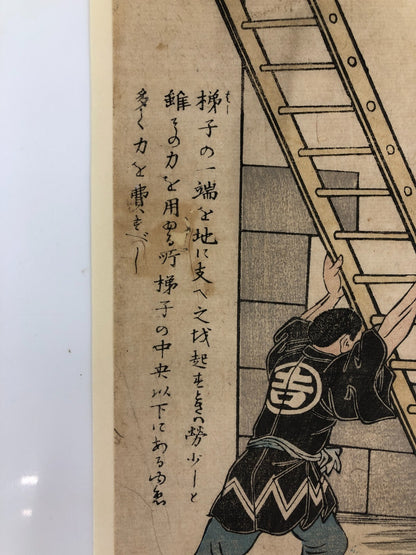 梯子の一端を地に支へ之を起すときハ労少しと
雖その力を用ゐる所梯子の中央以下にある
多く力を費すべし